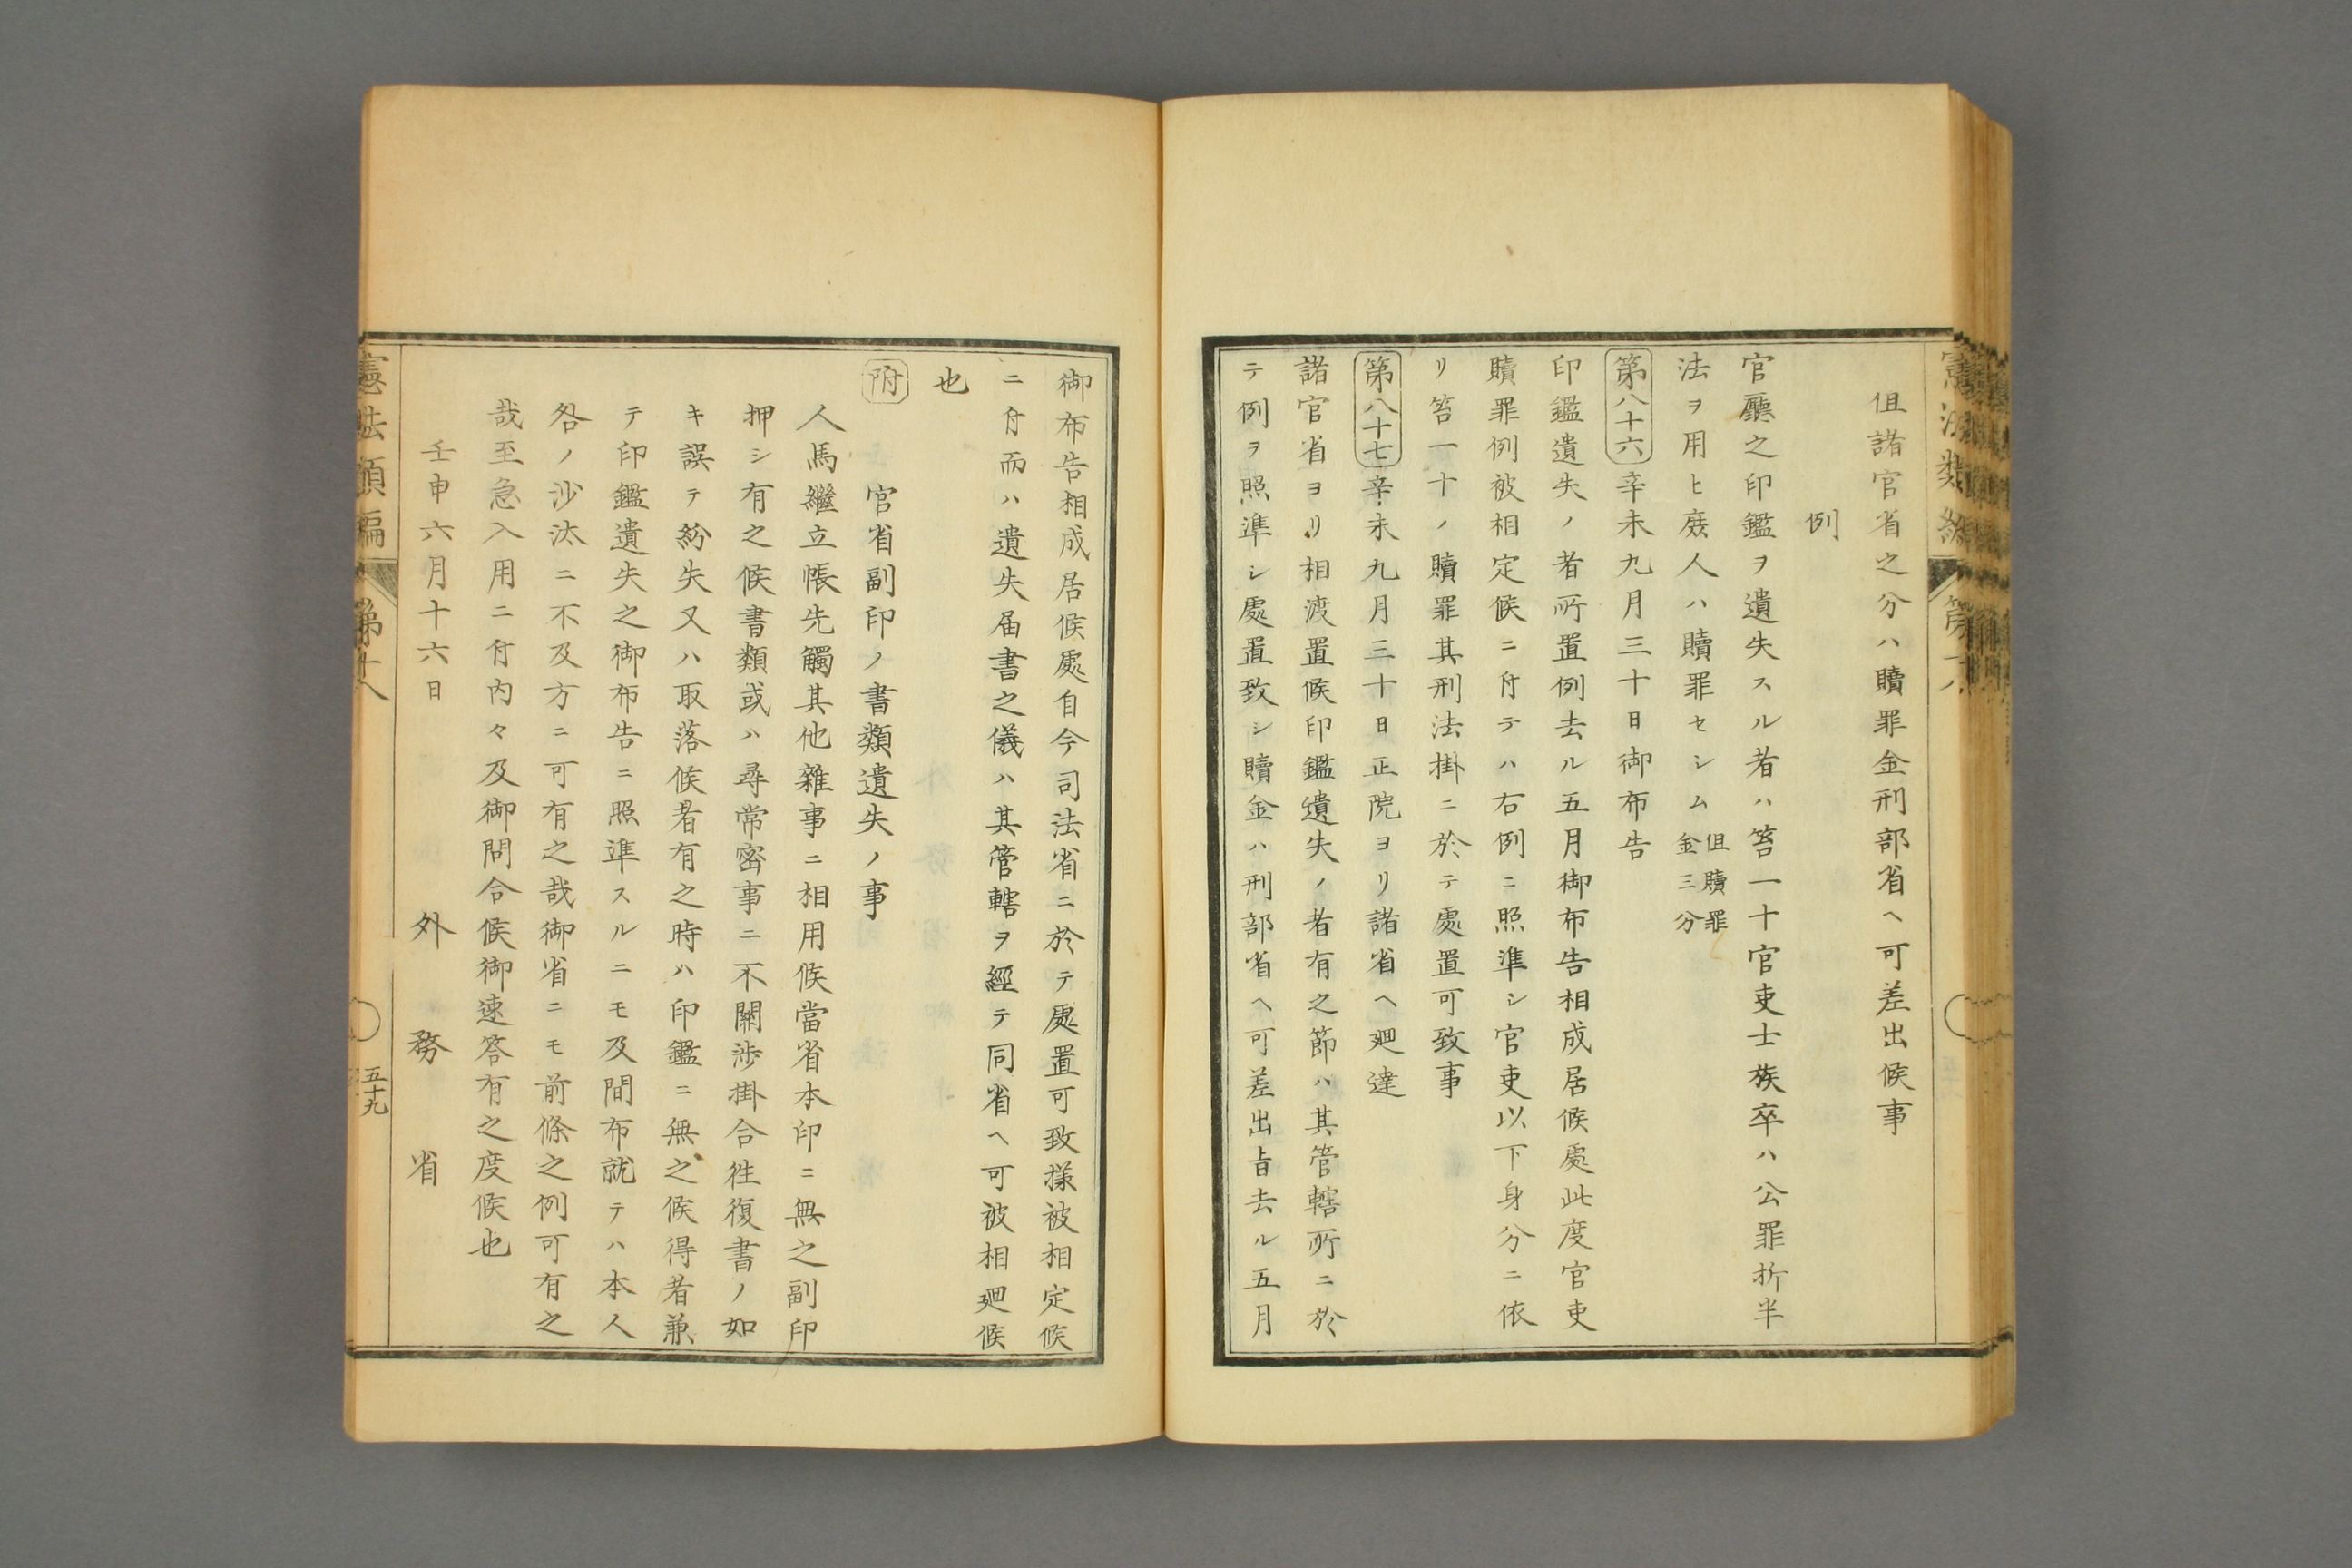 但諸官省之分ハ贖罪金刑部省ヘ可差出候事
例
官廳之印鑑ヲ遺失スル者ハ笞一十官吏士族卒ハ公罪折半
法ヲ用ヒ庶人ハ贖罪セシム但贖罪
金三分
第八十六辛未九月三十日御布告
印鑑遺失ノ者所置例去ル五月御布告相成居候處此度官吏
贖罪例被相定候ニ付テハ右例ニ照準シ官吏以下身分ニ依
リ笞一十ノ贖罪其刑法掛ニ於テ處置可致事
第八十七辛未九月三十日正院ヨリ諸省ヘ廻達
諸官省ヨリ相渡置候印鑑遺失ノ者有之節ハ其管轄所ニ於
テ例ヲ照準シ處置致シ贖金ハ刑部省ヘ可差出旨去ル五月
御布告相成居候處自今司法省ニ於テ處置可致樣被相定候
ニ付而ハ遺失届書之儀ハ其管轄ヲ經テ同省ヘ可被相廻候
也
附
官省副印ノ書類遺失ノ事
人馬繼立帳先觸其他雜事ニ相用候當省本印ニ無之副印
押シ有之候書類或ハ尋常密事ニ不關渉掛合徃復書ノ如
キ誤テ紛失又ハ取落候者有之時ハ印鑑ニ無之候得者兼
テ印鑑遺失之御布告ニ照準スルニモ及間布就テハ本人
各ノ沙汰ニ不及方ニ可有之哉御省ニモ前條之例可有之
哉至急入用ニ付内々及御問合候御速答有之度候也
壬申六月十六日
外務省
憲法類編
第十八
五十九